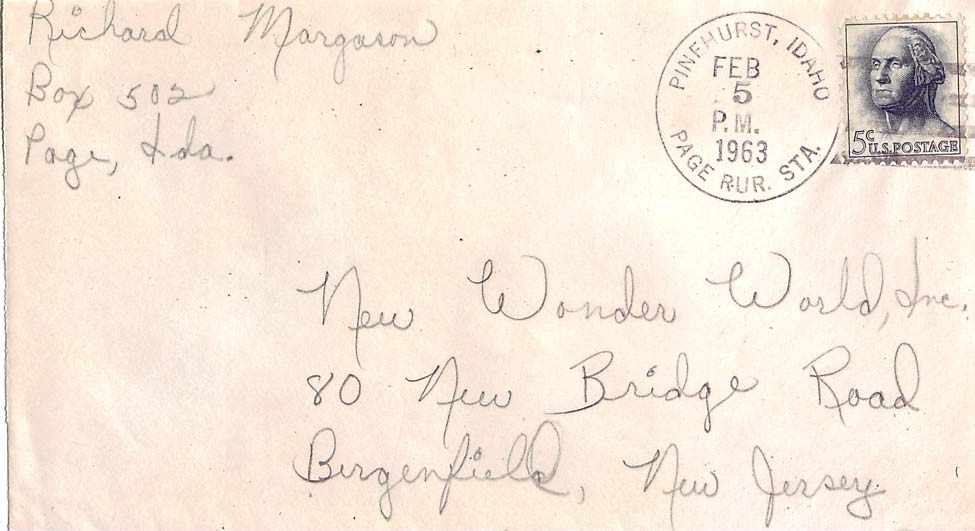 Richard Margason
Box 502
Page, Ida.
PINEHURST, IDAHO
FEB
5
P.M.
1963
PAGE RUR. STA.
5¢
U.S. POSTAGE
New Wonder World, Inc.
80 New Bridge Road
Bergenfield, New Jersey